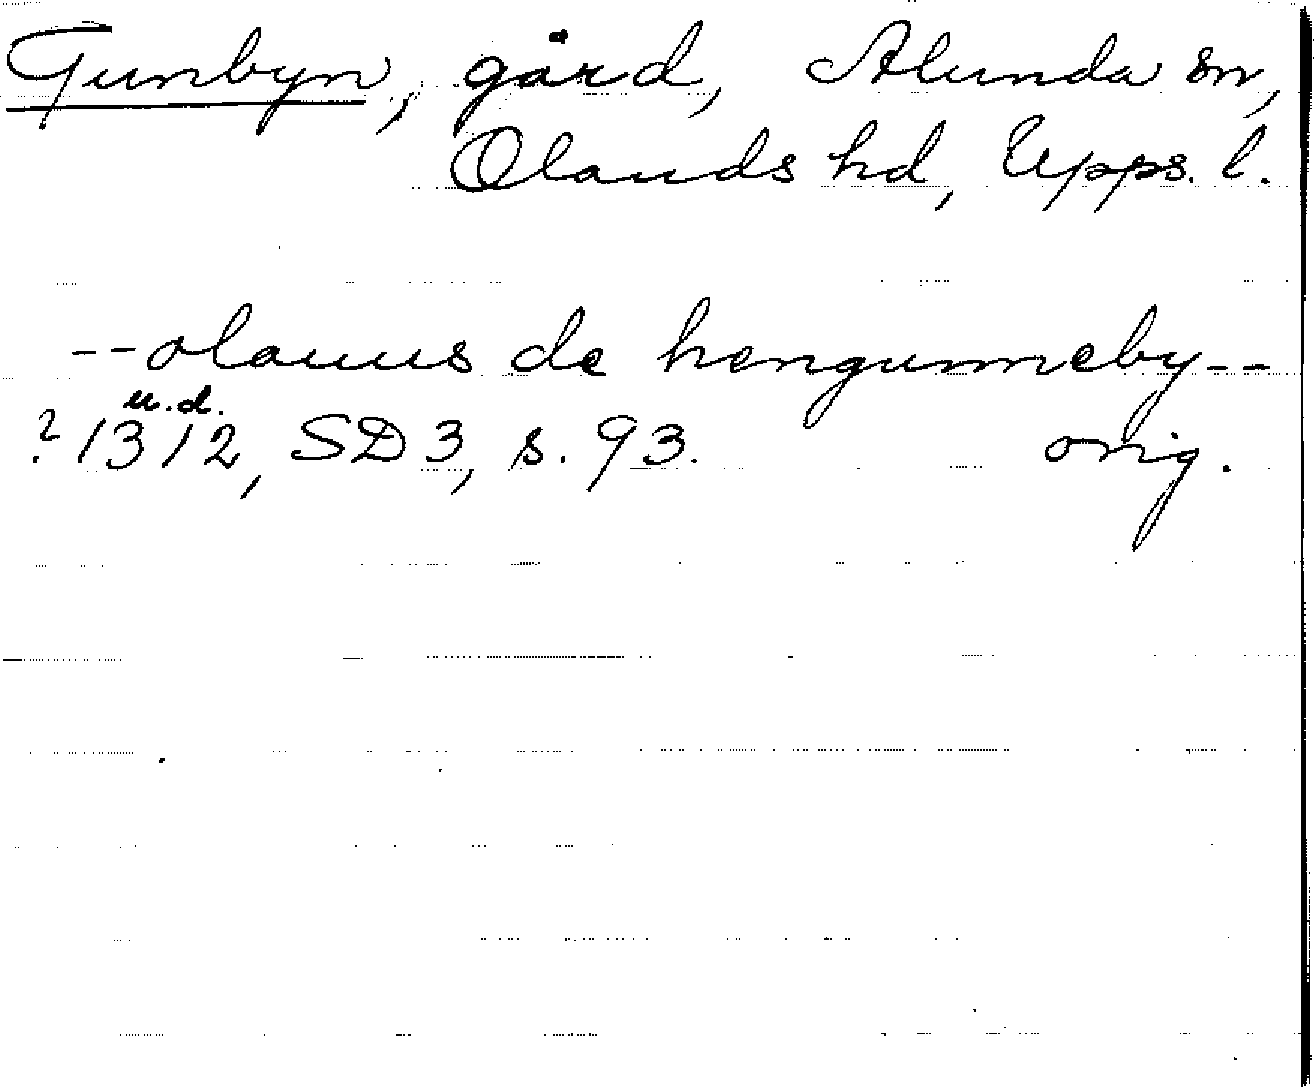 Gunbyn, gård, Alunda sn,
Olands hd, Upps. l.
--olauus de hengunneby--
u.d.
? 1312, SD 3, s. 93. orig.